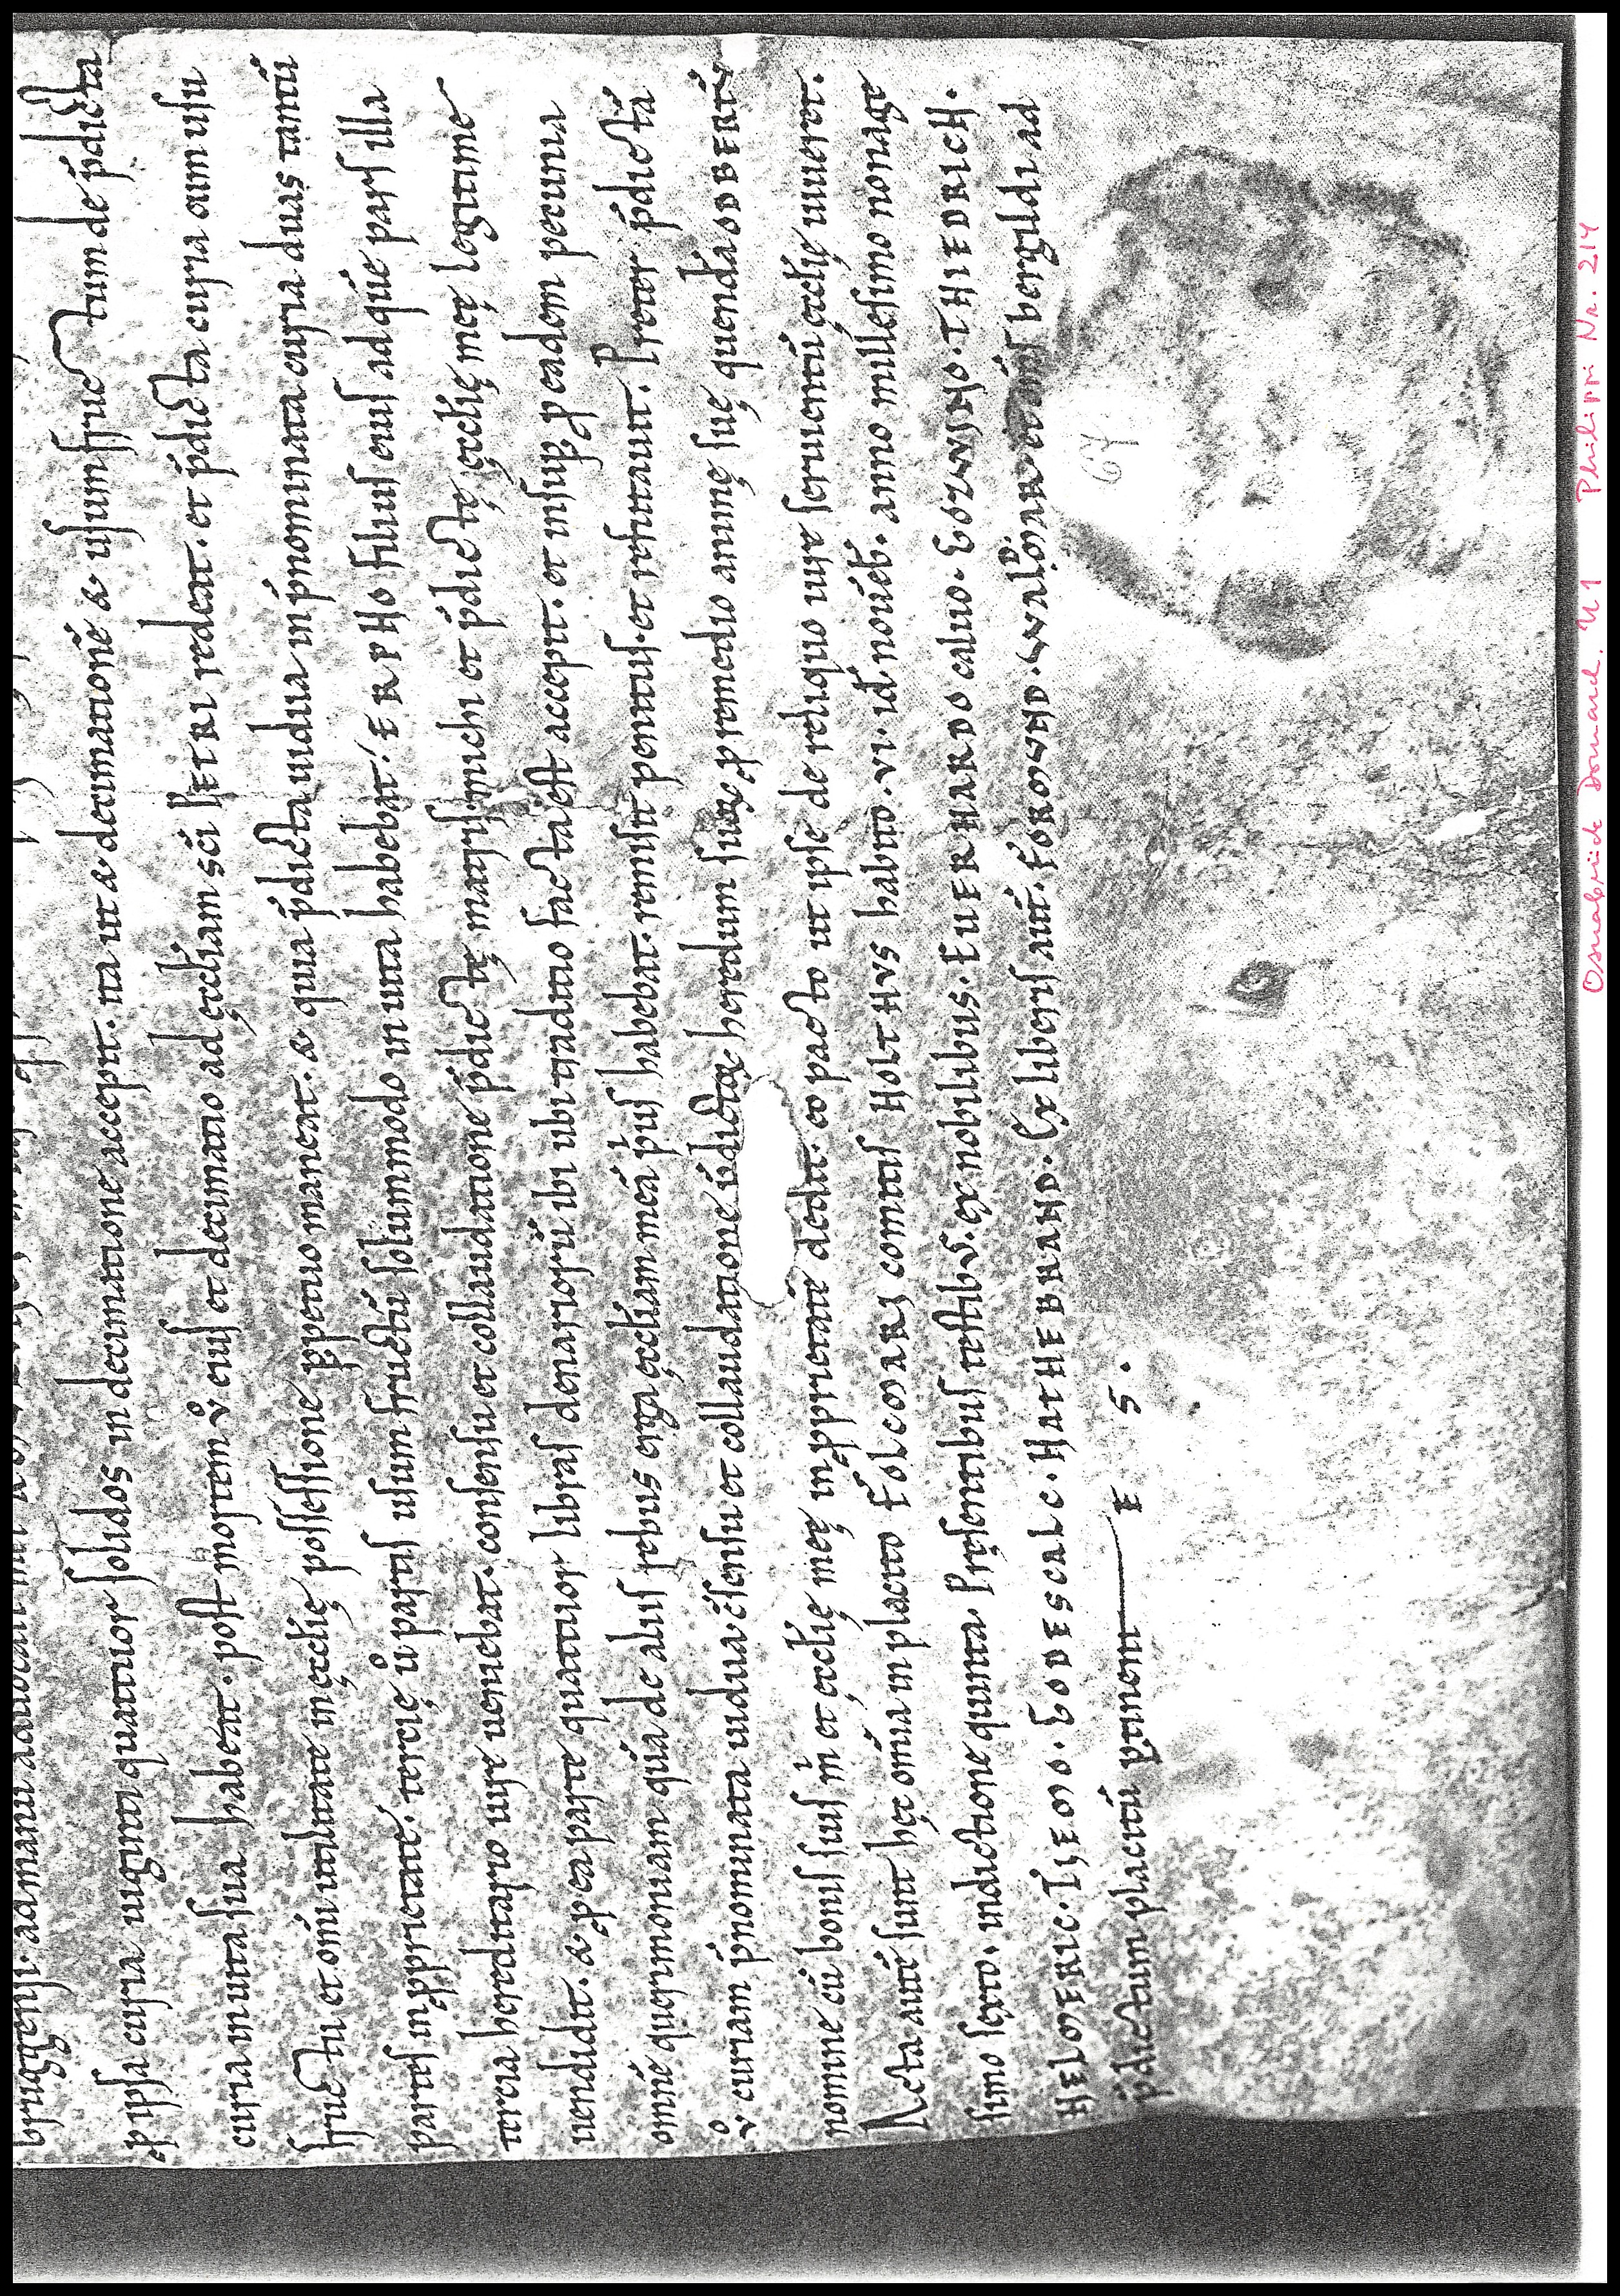 bruggensi. ad manu aduocati mei
ꝓ ipsa curia uiginti quattuor solidos in decimatione accepit. ita ut & decimationē & usumfructum de p̄dicta
curia in uita sua habeat. post mortem v̊ eius et decimatio ad ęcclīam sc̄i PETRI redeat. et p̄dicta curia cum usu
fructu et om̄i utilitate in ęcclię possessione ꝑpetuo maneat. & quia p̄dicta uidua in p̄nominata curia duas tantū
partes in ꝓprietatē. tercię ů partis usum fructū solummodo in uita habebat. ERPHO filius eius ad quē pars illa
tercia hereditario iure ueniebat. consensu et collaudatione p̄dictę matris michi et p̄dictę ęcclię meę legitime
uendidit. & ꝓ ea parte quattuor libras denariorū ibi ubi traditio facta est accepit. et insuꝑ ꝓ eadem pecunia
omnē querimoniam quā de aliis rebus erga ęcclīam meā p̄us habebat. remisit penitus. et refutauit. Preter p̄dictā
v̊ curiam p̄nominata uidua c̄sensu et collaudatione ū dictoꝝ heredum suoꝝ ꝓ remedio animę suę quendā ODBERTŪ
nomine cū bonis suis m̄ et ęcclię meę in ꝓprietatē dedit. eo pacto ut ipse de reliquo iure seruientū ęcclię uiueret.
Acta autē sunt hęc om̄ia in placito FOLCMARI comitis HOLTHVS habito. vi. id. nouēb. anno millesimo nonage
simo sexto. indictione quinta. Pręsentibus testibus. ex nobilibus. EUERHARDO caluo. GOZWINO. THIEDRICH.
HELMERIC. TIEMO. GODESCALC. HATHEBRAND. Ex liberis aut̄. FORMUND. WALDMAR. et om̄s bergildi ad
p̄dictum placitū ꝑtinent E S.
67
Osnabrück Domarch. U 1 Philippi Nr. 214